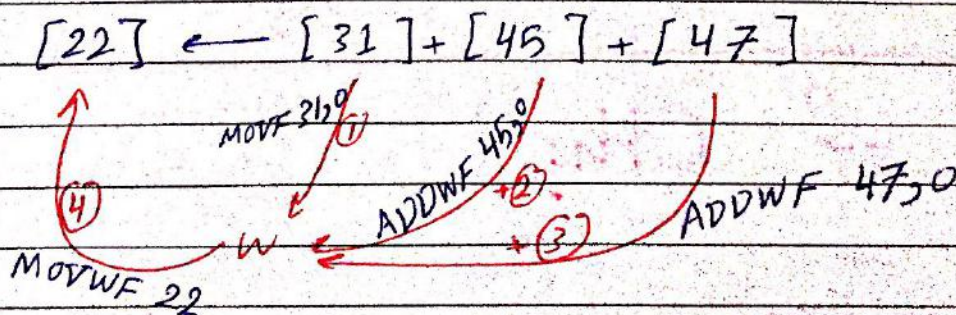 [22] ← [31] + [45] + [47]
MOVF 31,0
①
ADDWF 45,0
+②
ADDWF 47,0
④
W
+③
MOVWF 22